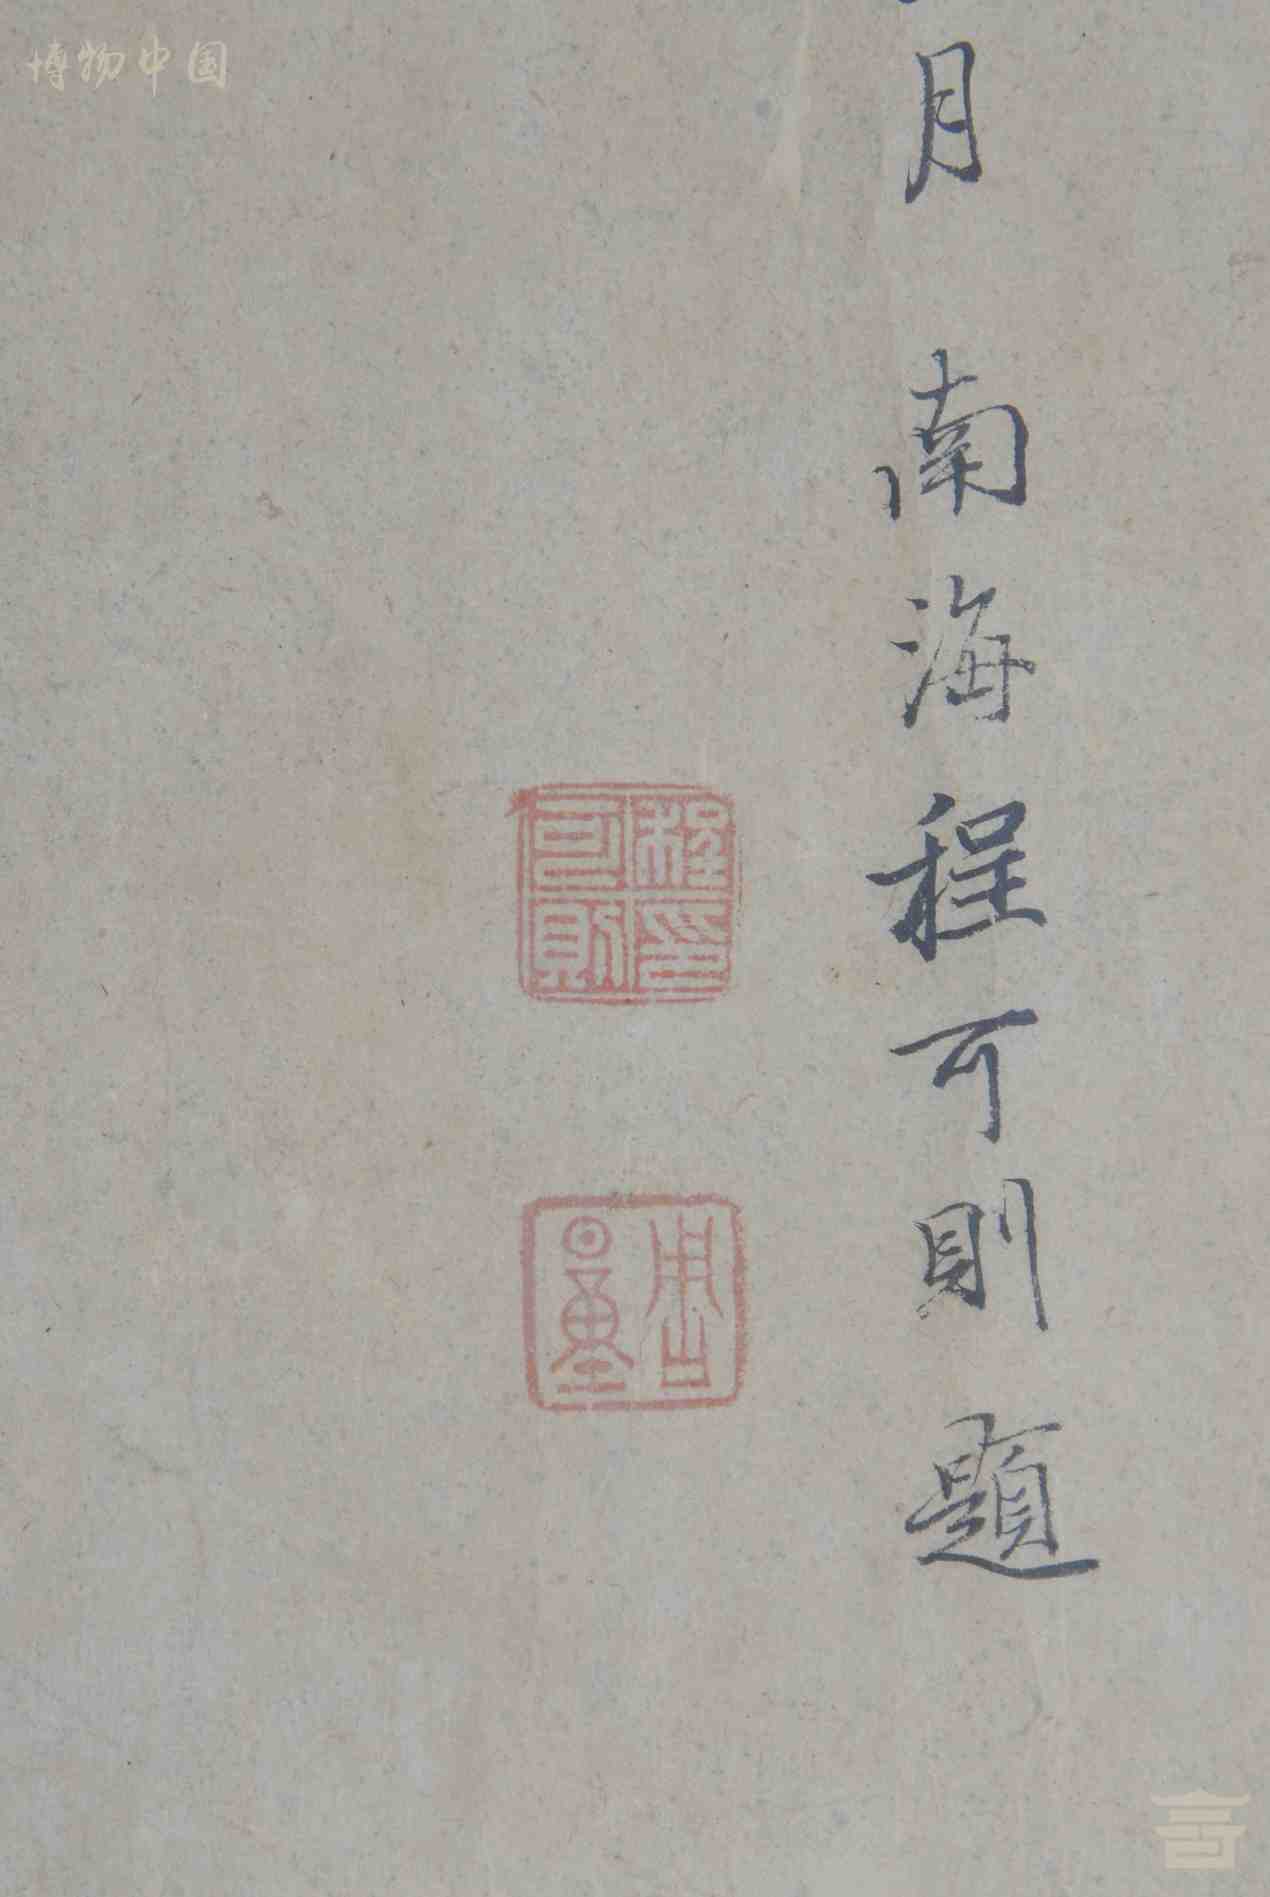 博物中国
月 南海程可則題
程印可則
周量